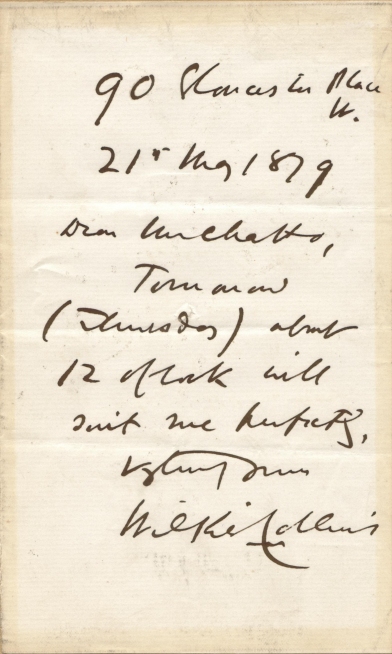 90 Gloucester Place
W.
21st May 1879
Dear Mr Chatto,
Tomorrow
(Thursday) about
12 o'clock will
suit me perfectly,
Vy truly yours
Wilkie Collins